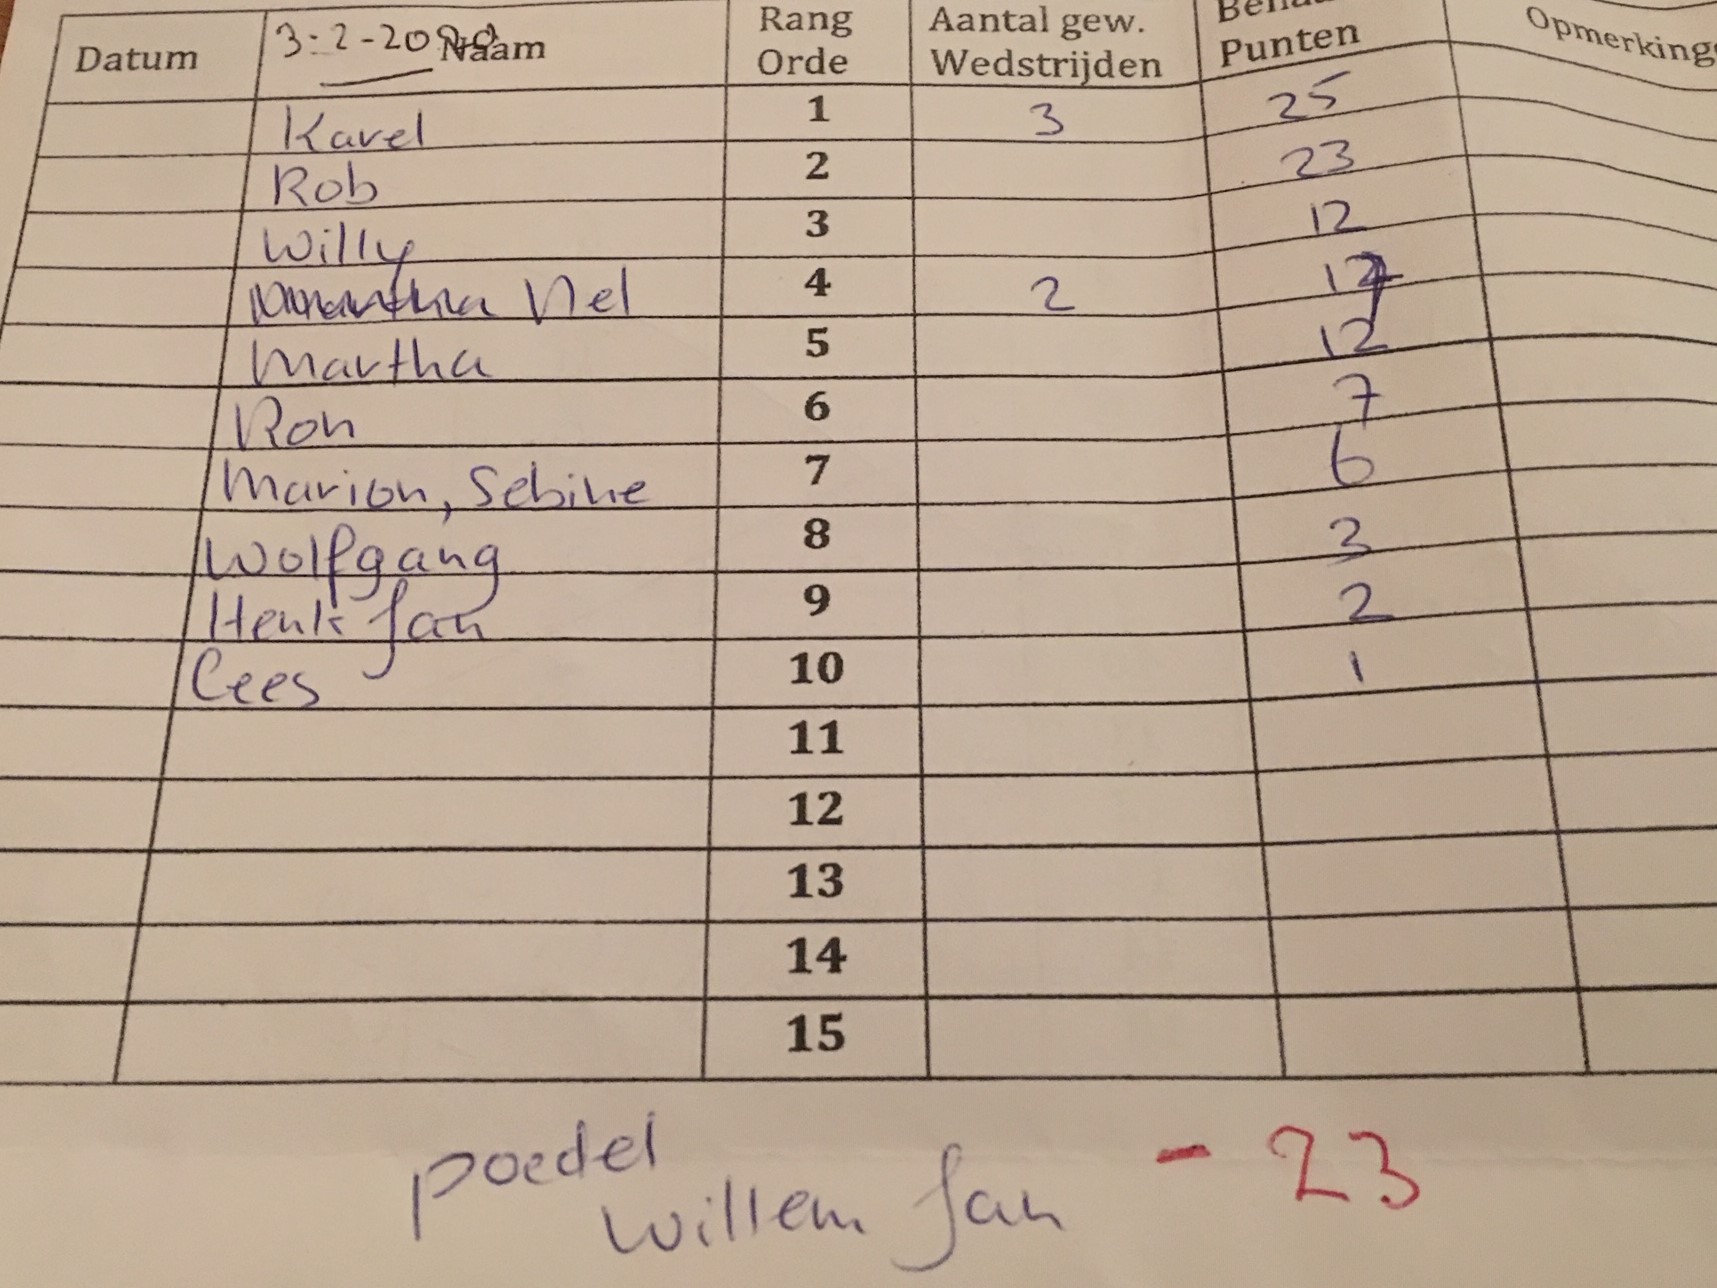 Datum 3-2-20 Naam Rang Orde Aantal gew. Wedstrijden Punten
Karel 1 3 25
Rob 2 23
Willy 3 12
Nel 4 2
Martha 5 12
Ron 6 7
Marion, Sebine 7 6
Wolfgang 8 3
Henk Jan 9 2
Cees 10 1
11
12
13
14
15
poedel
Willem Jan - 23